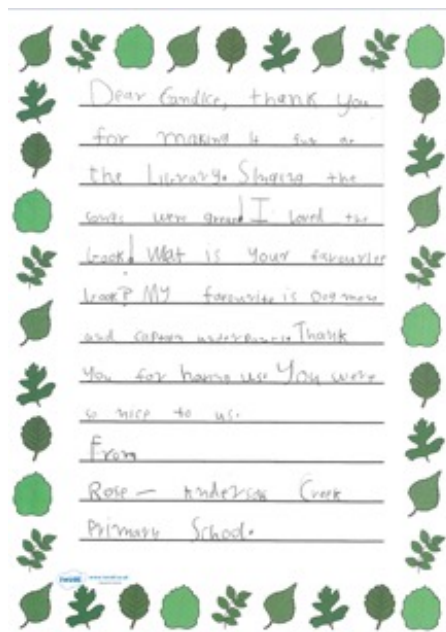 Dear Candice, thank you
for making it fun at
the Library. Singing the
songs were great! I loved the
book! Wat is your favourite
book? My favourite is Dog man
and captain underpants. Thank
you for having us. You were
so nice to us.
From
Rose - Anderson Creek
Primary School.